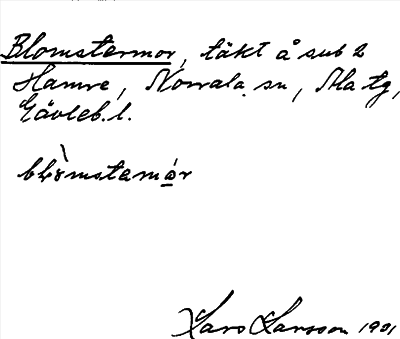 Blomstermor, täkt å sub 2
Hamre, Norrala sn, Ala tg,
Gävleb. l.
blòmstamór
Lars Larsson 1901